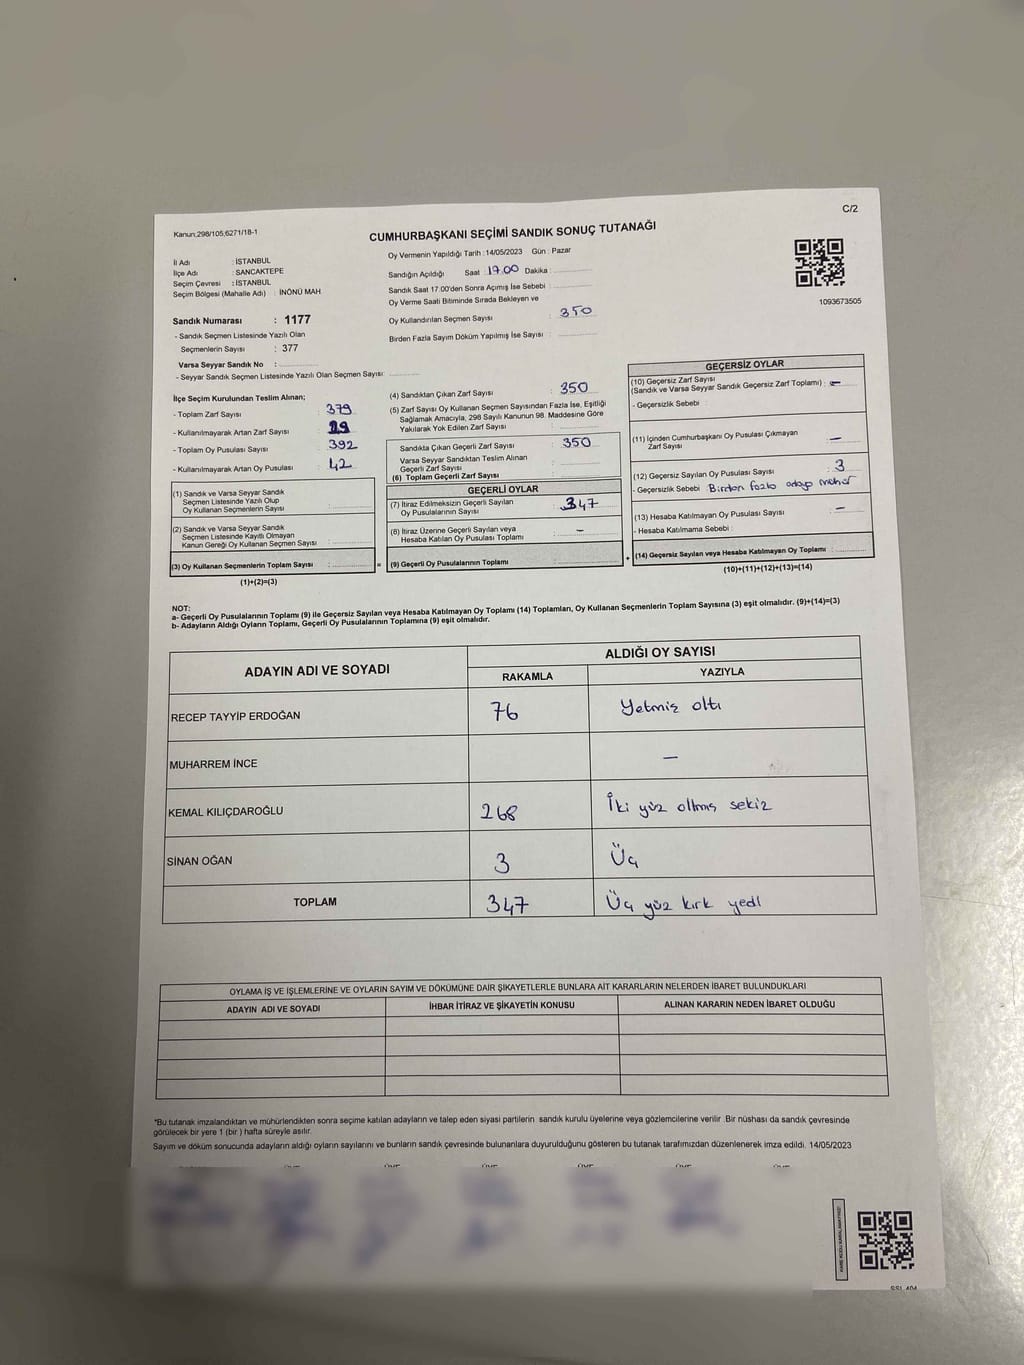 C/2
Kanun:298/105,6271/18-1
CUMHURBAŞKANI SEÇİMİ SANDIK SONUÇ TUTANAĞI
İl Adı : İSTANBUL
İlçe Adı : SANCAKTEPE
Seçim Çevresi : İSTANBUL
Seçim Bölgesi (Mahalle Adı) : İNÖNÜ MAH
Sandık Numarası : 1177
- Sandık Seçmen Listesinde Yazılı Olan
Seçmenlerin Sayısı : 377
Varsa Seyyar Sandık No :
- Seyyar Sandık Seçmen Listesinde Yazılı Olan Seçmen Sayısı:
Oy Vermenin Yapıldığı Tarih : 14/05/2023 Gün : Pazar
Sandığın Açıldığı Saat : 17.00 Dakika :
Sandık Saat 17.00'den Sonra Açımış İse Sebebi :
Oy Verme Saati Bitiminde Sırada Bekleyen ve
Oy Kullandırılan Seçmen Sayısı : 350
Birden Fazla Sayım Döküm Yapılmış İse Sayısı :
1093673505
İlçe Seçim Kurulundan Teslim Alınan;
- Toplam Zarf Sayısı : 379
- Kullanılmayarak Artan Zarf Sayısı : 29
- Toplam Oy Pusulası Sayısı : 392
- Kullanılmayarak Artan Oy Pusulası : 42
(1) Sandık ve Varsa Seyyar Sandık
Seçmen Listesinde Yazılı Olup
Oy Kullanan Seçmenlerin Sayısı :
(2) Sandık ve Varsa Seyyar Sandık
Seçmen Listesinde Kayıtlı Olmayan
Kanun Gereği Oy Kullanan Seçmen Sayısı :
(3) Oy Kullanan Seçmenlerin Toplam Sayısı :
(1)+(2)=(3)
(4) Sandıktan Çıkan Zarf Sayısı : 350
(5) Zarf Sayısı Oy Kullanan Seçmen Sayısından Fazla İse, Eşitliği
Sağlamak Amacıyla, 298 Sayılı Kanunun 98. Maddesine Göre
Yakılarak Yok Edilen Zarf Sayısı :
Sandıkta Çıkan Geçerli Zarf Sayısı : 350
Varsa Seyyar Sandıktan Teslim Alınan
Geçerli Zarf Sayısı :
(6) Toplam Geçerli Zarf Sayısı :
GEÇERLİ OYLAR
(7) İtiraz Edilmeksizin Geçerli Sayılan
Oy Pusulalarının Sayısı : 347
(8) İtiraz Üzerine Geçerli Sayılan veya
Hesaba Katılan Oy Pusulası Toplamı : -
= (9) Geçerli Oy Pusulalarının Toplamı
GEÇERSİZ OYLAR
(10) Geçersiz Zarf Sayısı
(Sandık ve Varsa Seyyar Sandık Geçersiz Zarf Toplamı) : -
- Geçersizlik Sebebi :
(11) İçinden Cumhurbaşkanı Oy Pusulası Çıkmayan
Zarf Sayısı : -
(12) Geçersiz Sayılan Oy Pusulası Sayısı : 3
- Geçersizlik Sebebi Birden fazla adaya mühür
(13) Hesaba Katılmayan Oy Pusulası Sayısı : -
- Hesaba Katılmama Sebebi :
+ (14) Geçersiz Sayılan veya Hesaba Katılmayan Oy Toplamı :
(10)+(11)+(12)+(13)=(14)
NOT:
a- Geçerli Oy Pusulalarının Toplamı (9) ile Geçersiz Sayılan veya Hesaba Katılmayan Oy Toplamı (14) Toplamları, Oy Kullanan Seçmenlerin Toplam Sayısına (3) eşit olmalıdır. (9)+(14)=(3)
b- Adayların Aldığı Oyların Toplamı, Geçerli Oy Pusulalarının Toplamına (9) eşit olmalıdır.
ADAYIN ADI VE SOYADI
ALDIĞI OY SAYISI
RAKAMLA YAZIYLA
RECEP TAYYİP ERDOĞAN 76 Yetmiş altı
MUHARREM İNCE -
KEMAL KILIÇDAROĞLU 268 İki yüz altmış sekiz
SİNAN OĞAN 3 Üç
TOPLAM 347 Üç yüz kırk yedi
OYLAMA İŞ VE İŞLEMLERİNE VE OYLARIN SAYIM VE DÖKÜMÜNE DAİR ŞİKAYETLERLE BUNLARA AİT KARARLARIN NELERDEN İBARET BULUNDUKLARI
ADAYIN ADI VE SOYADI İHBAR İTİRAZ VE ŞİKAYETİN KONUSU ALINAN KARARIN NEDEN İBARET OLDUĞU
*Bu tutanak imzalandıktan ve mühürlendikten sonra seçime katılan adayların ve talep eden siyasi partilerin sandık kurulu üyelerine veya gözlemcilerine verilir. Bir nüshası da sandık çevresinde
görülecek bir yere 1 (bir ) hafta süreyle asılır.
Sayım ve döküm sonucunda adayların aldığı oyların sayılarını ve bunların sandık çevresinde bulunanlara duyurulduğunu gösteren bu tutanak tarafımızdan düzenlenerek imza edildi. 14/05/2023